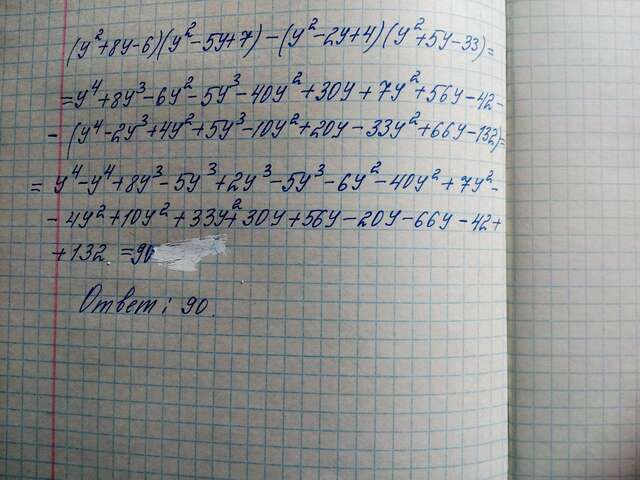 (y²+8y-6)(y²-5y+7)-(y²-2y+4)(y²+5y-33)=
=y⁴+8y³-6y²-5y³-40y²+30y+7y²+56y-42-
-(y⁴-2y³+4y²+5y³-10y²+20y-33y²+66y-132)=
=y⁴-y⁴+8y³-5y³+2y³-5y³-6y²-40y²+7y²-
-4y²+10y²+33y²+30y+56y-20y-66y-42+
+132 =90
Ответ: 90.